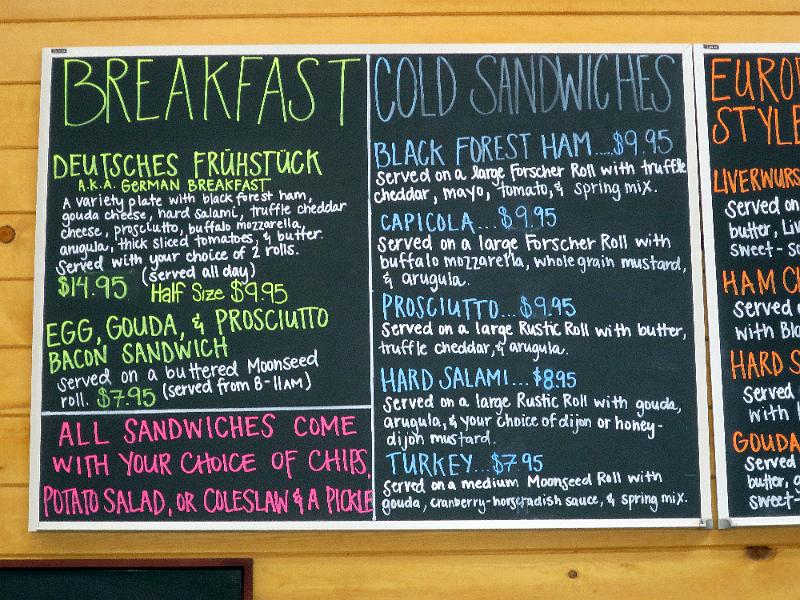 BREAKFAST
DEUTSCHES FRÜHSTÜCK
A.K.A. GERMAN BREAKFAST
A variety plate with black forest ham,
gouda cheese, hard salami, truffle cheddar
cheese, prosciutto, buffalo mozzarella,
arugula, thick sliced tomatoes, & butter.
Served with your choice of 2 rolls.
(served all day)
$14.95 Half Size $9.95
EGG, GOUDA, & PROSCIUTTO
BACON SANDWICH
served on a buttered Moonseed
roll. $7.95 (served from 8-11AM)
ALL SANDWICHES COME
WITH YOUR CHOICE OF CHIPS,
POTATO SALAD, OR COLESLAW & A PICKLE
COLD SANDWICHES
BLACK FOREST HAM....$9.95
served on a large Forscher Roll with truffle
cheddar, mayo, tomato, & spring mix.
CAPICOLA...$9.95
Served on a large Forscher Roll with
buffalo mozzarella, whole grain mustard,
& arugula.
PROSCIUTTO...$9.95
Served on a large Rustic Roll with butter,
truffle cheddar, & arugula.
HARD SALAMI...$8.95
Served on a large Rustic Roll with gouda,
arugula, & your choice of dijon or honey-
dijon mustard.
TURKEY...$7.95
Served on a medium Moonseed Roll with
gouda, cranberry-horseradish sauce, & spring mix.
EURO
STYLE
LIVERWURS
Served on
butter, Liv
sweet-so
HAM C
Served
with Bla
HARD S
Served
with
GOUDA
Served
butter, g
sweet-